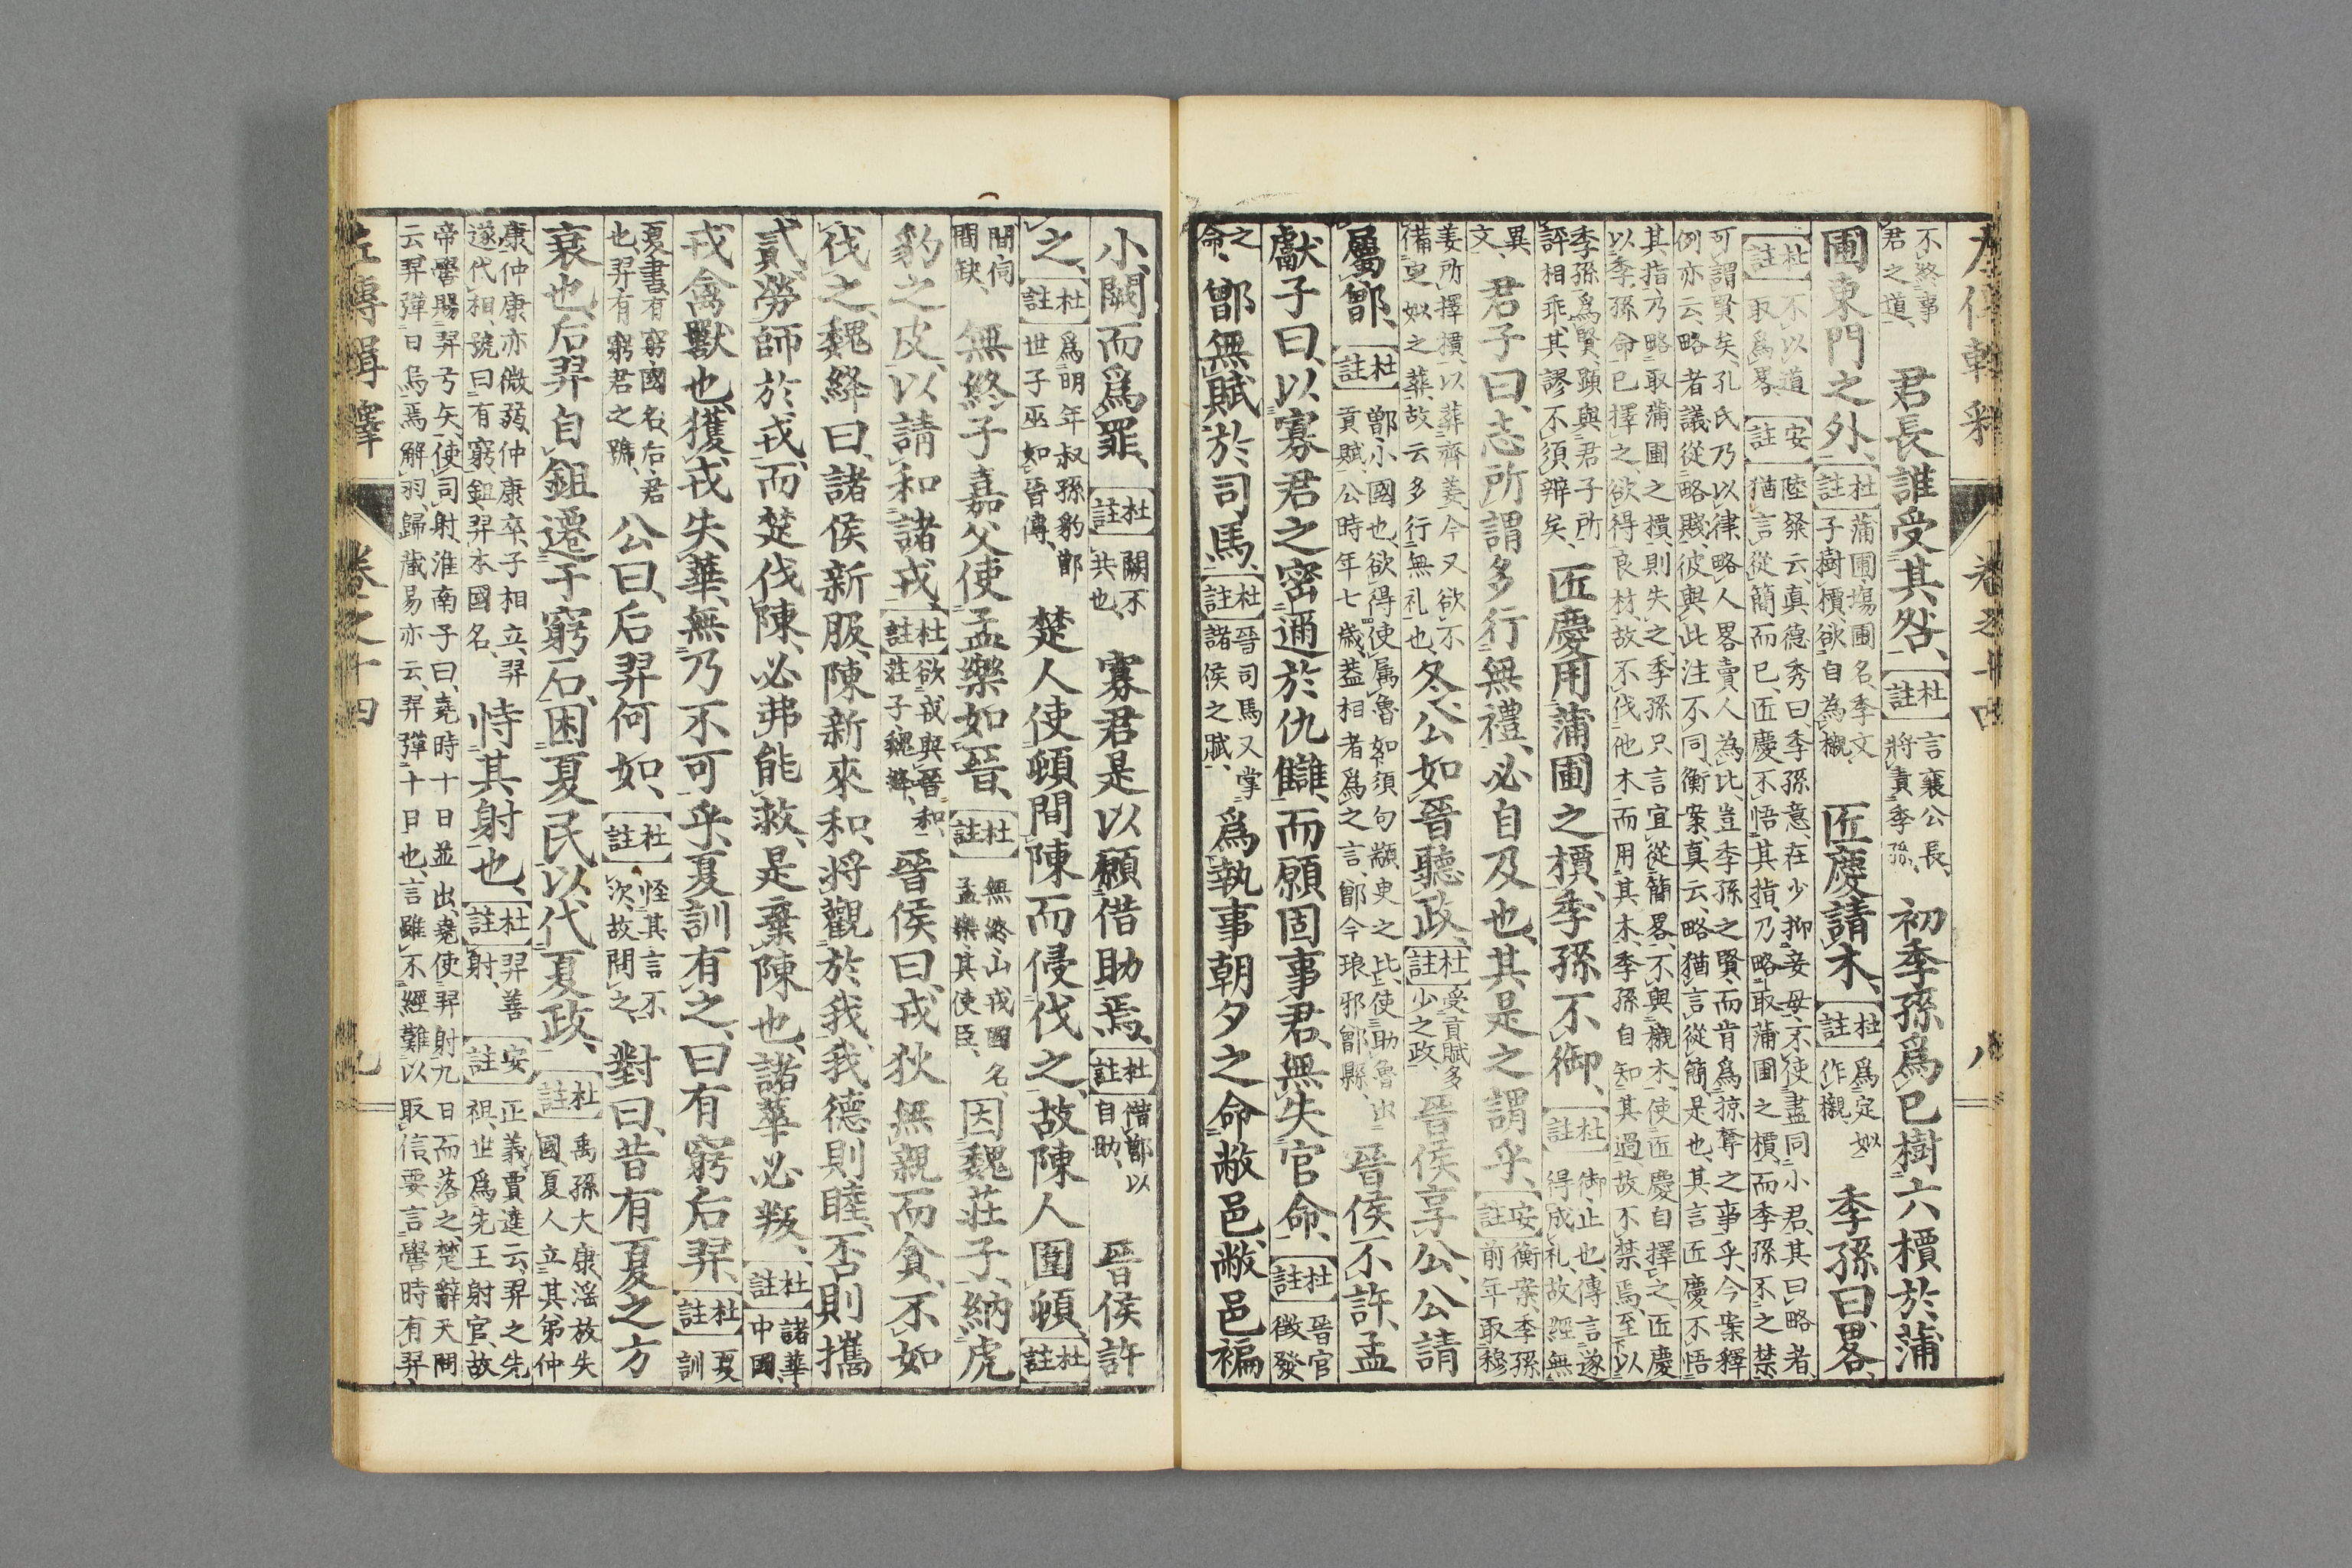 左傳輯釋　卷之十四　八
不終事君之道、　君長誰受其咎、杜註言襄公長、將責季孫、　初季孫爲己樹六檟於蒲
圃東門之外、杜註蒲圃塲圃名、季文子樹檟、欲自為櫬、　匠慶請木、杜註爲定姒作櫬、　季孫曰、畧、
杜註不以道取爲畧、安註陸粲云、真德秀曰季孫意、在少抑妾母、不使盡同小君、其曰略者、猶言從簡而已、匠慶不悟其指、乃略取蒲圃之檟、而季孫不之禁、
可謂賢矣、孔氏乃以律、略人畧賣人為比、豈季孫之賢、而肯爲掠奪之事乎、今案釋例亦云、略者議從略賤、彼與此注不同、衡案真云、略猶言從簡是也、其言匠慶不悟
其指、乃略取蒲圃之檟、則失之、季孫只言宜從簡畧、不與櫬木、使匠慶自擇之、匠慶以季孫命已擇之、欲得良材、故不伐他木、而用其木、季孫自知其過、故不禁焉、至下以
季孫爲賢、顕與君子所評相乖、其謬不須辨矣、　匠慶用蒲圃之檟、季孫不御、杜註御止也、傳言遂得成礼、故經無
異文、　君子曰、志所謂多行無禮、必自及也、其是之謂乎、安註衡案、季孫前年取穆
姜所擇檟、以葬齊姜、今又欲不備定姒之葬、故云多行無礼也、　冬、公如晉聽政、杜註受貢賦多少之政、　晉侯享公、公請
屬鄫、杜註鄫小國也、欲得使属魯如須句顓臾之比、使助魯出貢賦、公時年七歳、葢相者爲之言、鄫今琅邪鄫縣、　晉侯不許、孟
獻子曰、以寡君之密邇於仇讎、而願固事君、無失官命、杜註晉官徵發
之命、　鄫無賦於司馬、杜註晉司馬又掌諸侯之賦、　爲執事朝夕之命敝邑、敝邑褊
小、闕而爲罪、杜註闕不共也、　寡君是以願借助焉、杜註借鄫以自助、　晉侯許
之、杜註爲明年叔孫豹鄫世子巫如晉傳、　楚人使頓間陳而侵伐之、故陳人圍頓、杜註
間伺間缺、　無終子嘉父使孟樂如晉、杜註無終山戎國名、孟樂其使臣、　因魏莊子、納虎
豹之皮、以請和諸戎、杜註欲戎與晉和、荘子魏絳、　晉侯曰、戎狄無親而貪、不如
伐之、魏絳曰、諸侯新服、陳新來和、将觀於我、我德則睦、否則攜
貳、勞師於戎、而楚伐陳、必弗能救、是棄陳也、諸華必叛、杜註諸華中國、
戎禽獸也、獲戎失華、無乃不可乎、夏訓有之、曰有窮后羿、杜註夏訓
夏書、有窮國名、后君也、羿有窮君之號、　公曰、后羿何如、杜註怪其言不次、故問之、　對曰、昔有夏之方
衰也、后羿自鉏遷于窮石、因夏民以代夏政、杜註禹孫大康淫放失國、夏人立其弟仲
康、仲康亦微弱、仲康卒、子相立、羿遂代相、號曰有窮、鉏羿本國名、　恃其射也、杜註羿善射、安註正義、賈逵云、羿之先祖、世爲先王射官、故
帝嚳賜羿弓矢、使司射、淮南子曰、堯時十日並出、堯使羿射九日而落之、楚辭天問云、羿彈日烏焉解羽、歸藏易亦云、羿彈十日也、言雖不經難以取信、要言嚳時有羿、
左傳輯釋　卷之十四　九